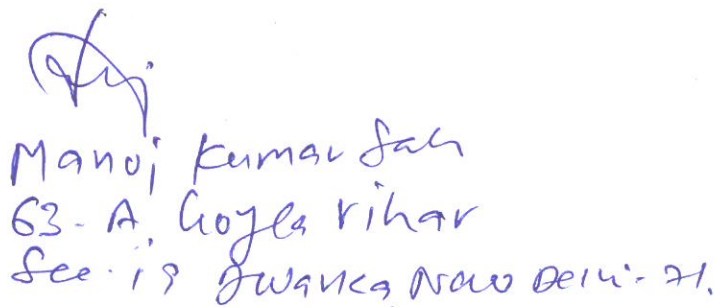 Manoj Kumar Sah
63-A, Goyla Vihar
Sec-19 Dwarka New Delhi-71.